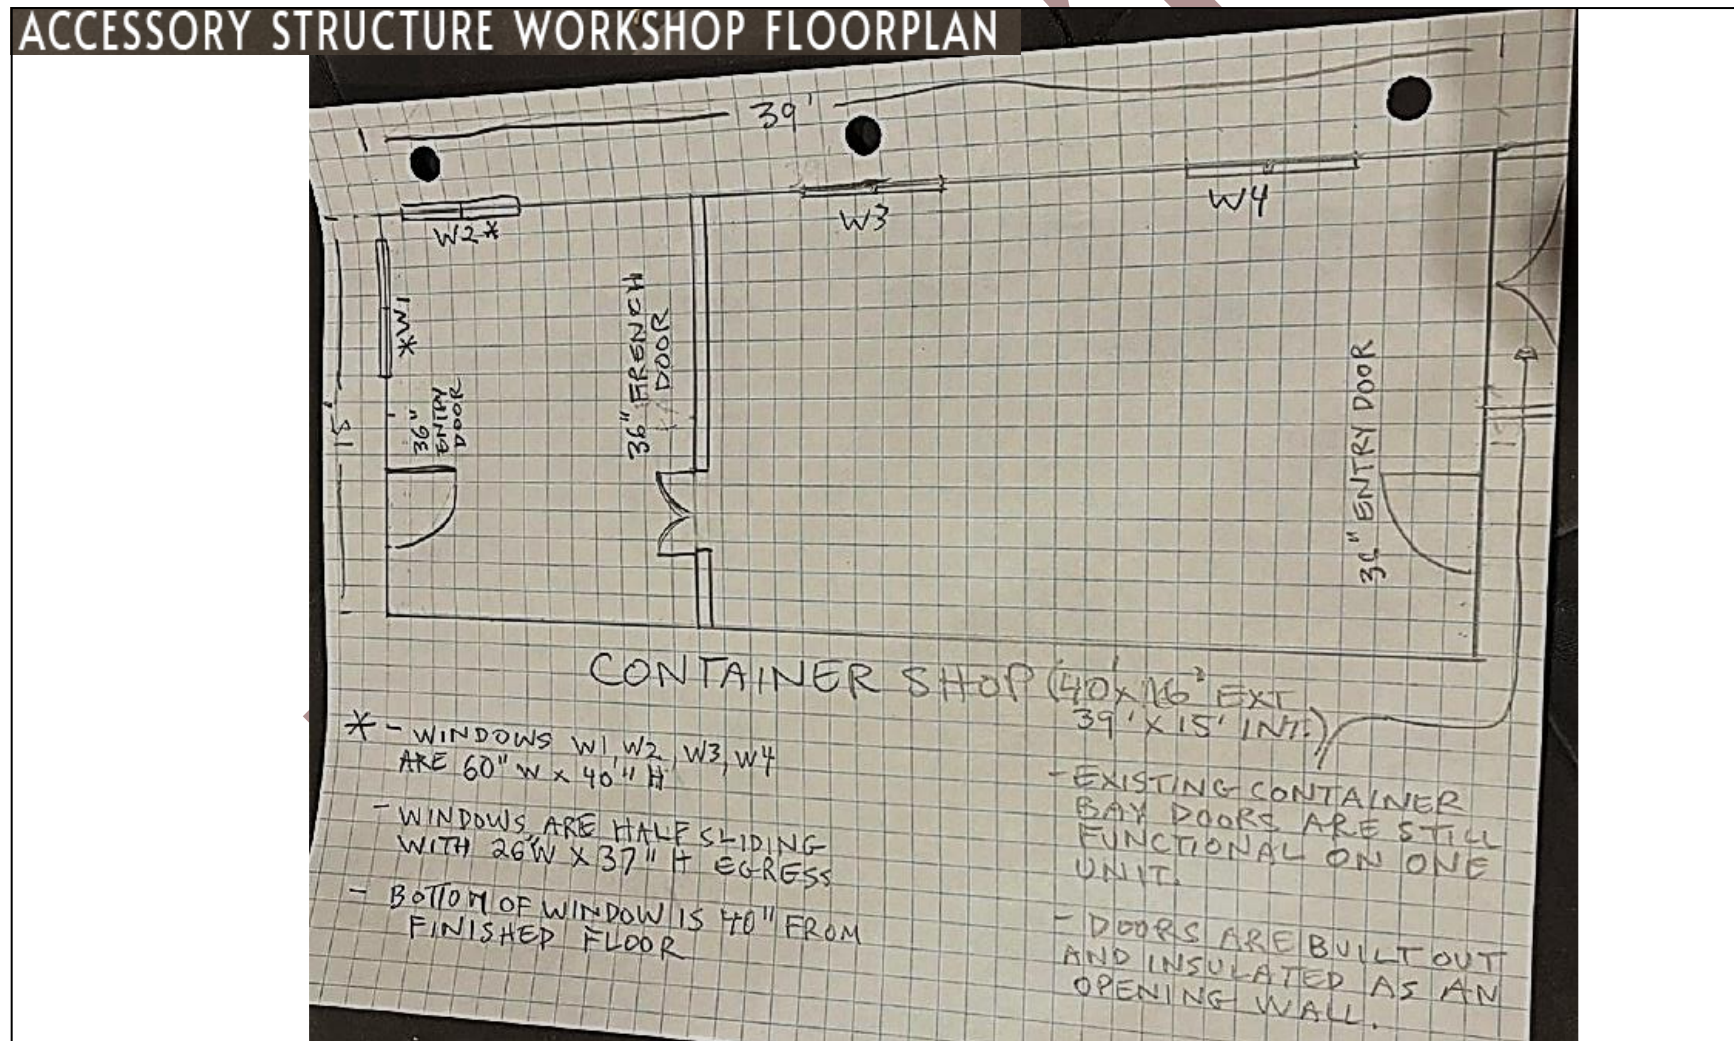 ACCESSORY STRUCTURE WORKSHOP FLOORPLAN
39'
W2*
W3
W4
*W1
15'
36"
ENTRY
DOOR
36" FRENCH
DOOR
36" ENTRY DOOR
CONTAINER SHOP (40' x 16' EXT
39' X 15' INT.)
* - WINDOWS W1, W2, W3, W4
ARE 60" W x 40" H
- WINDOWS ARE HALF SLIDING
WITH 26"W X 37" H EGRESS
- BOTTOM OF WINDOW IS 40" FROM
FINISHED FLOOR
- EXISTING CONTAINER
BAY DOORS ARE STILL
FUNCTIONAL ON ONE
UNIT.
- DOORS ARE BUILT OUT
AND INSULATED AS AN
OPENING WALL.